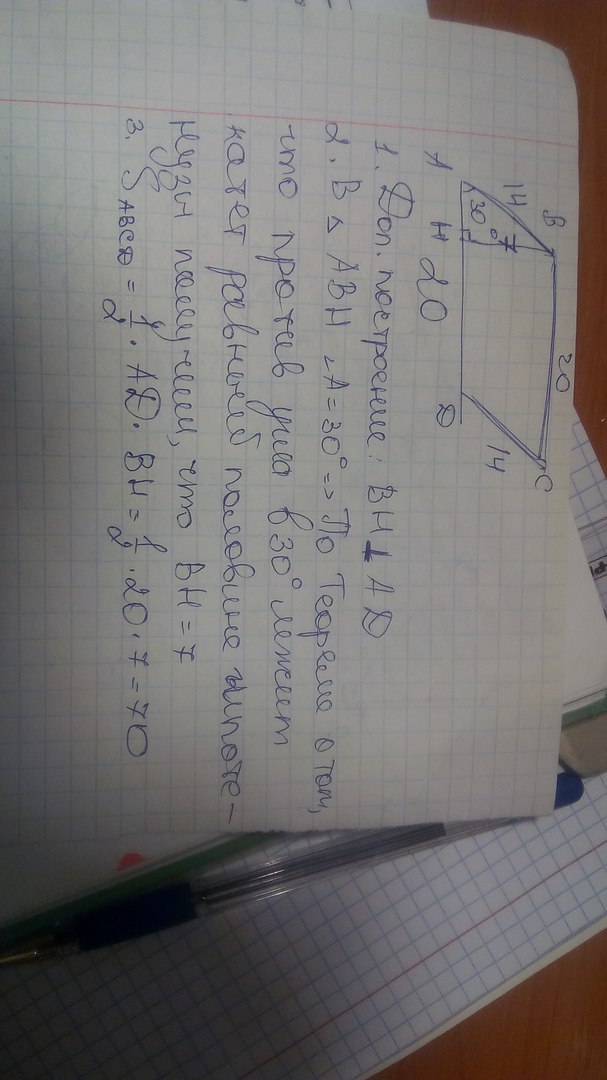 B 20 C
14 30° 7 14
A H 20 D
1. Доп. построение: BH⊥AD
2. В △ ABH ∠A=30° => По Теореме о том,
что против угла в 30° лежит
катет равный половине гипоте-
нузы получим, что BH=7
3. S ABCD = 1/2 · AD · BH = 1/2 · 20 · 7 = 70